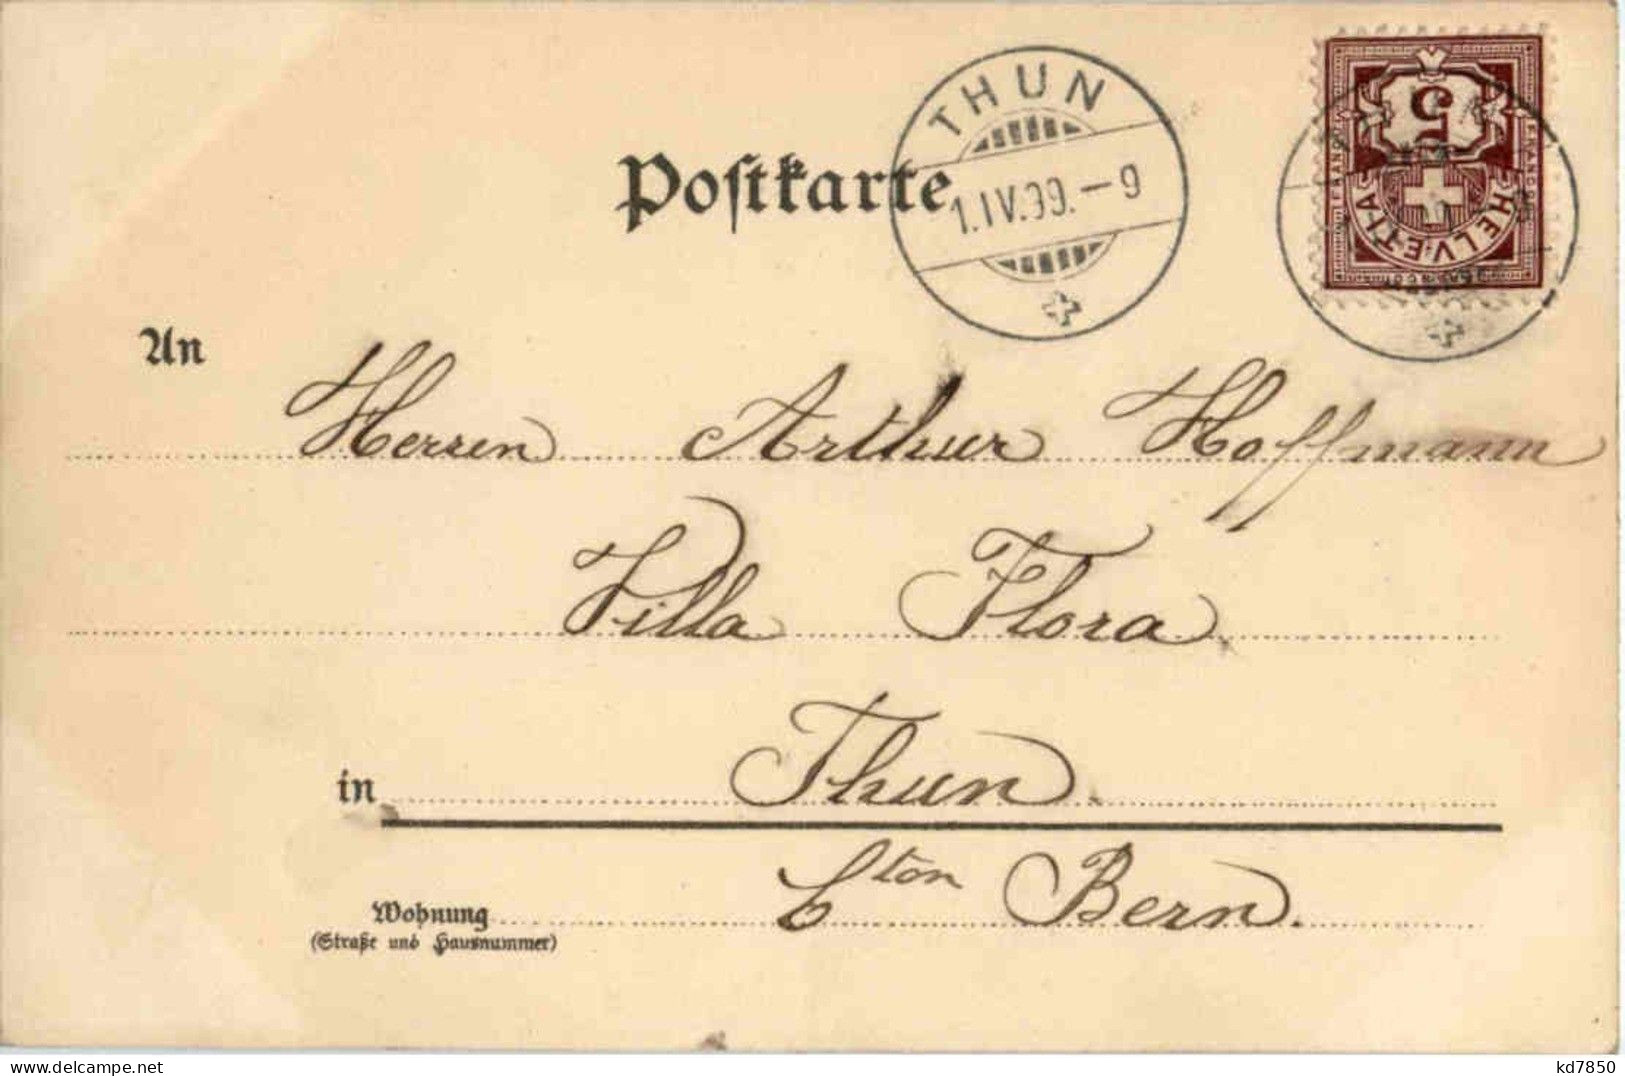 THUN
1.IV.99.—9
5
FRANCO
HELVETIA
Postkarte
An
Herren Arthur Hoffmann
Villa Flora
in Thun.
Cton Bern.
Wohnung
(Straße und Hausnummer)
delcampe.net
kd7850